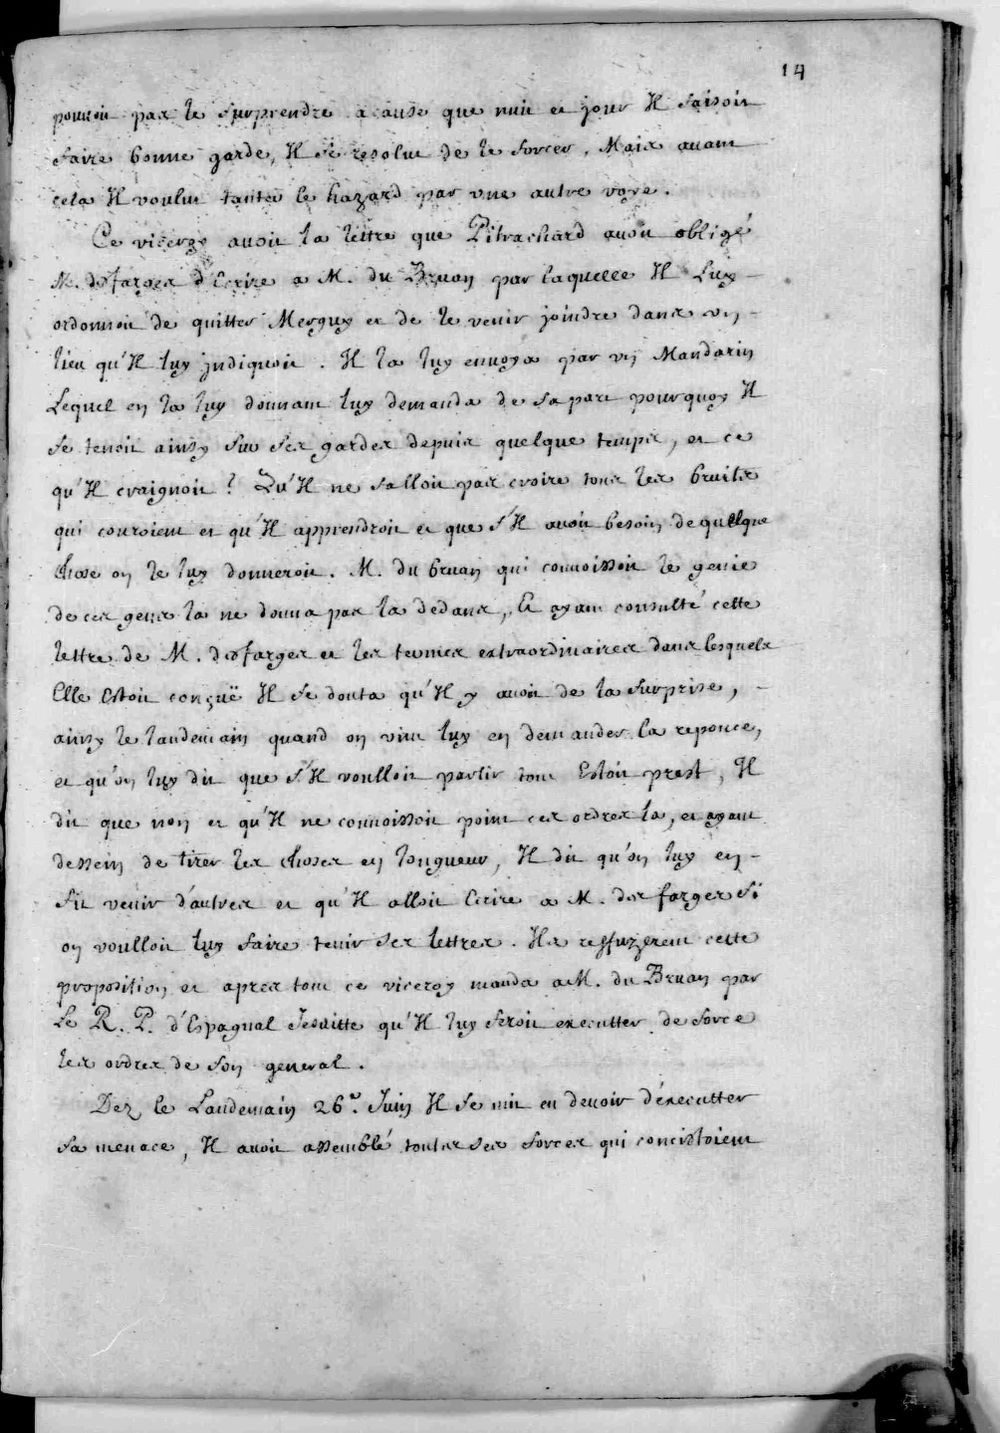 14
pouuoit pas le surprendre a cause que nuit et jour Il faisoit
faire bonne garde, Il se resolut de le forcer, Mais auant
cela Il voulut tanter le hazard par vne autre voye.
Ce viceroy auoit la lettre que Pitrachard auoit obligé
M. desfarges d'Ecrire a M. du Bruan par laquelle Il Luy
ordonnoit de quitter Merguy et de le venir joindre dans vn
lieu qu'Il luy jndiquoit. Il la luy enuoya par vn Mandarin
Lequel en la luy donnant luy demanda de sa part pourquoy Il
se tenoit ainsy sur ses gardes depuis quelque temps, et ce
qu'Il craignoit? Qu'Il ne falloit pas croire tous les bruits
qui couroient et qu'Il apprendroit et que s'Il auoit besoin de quelque
chose on le luy donneroit. M. du bruan qui connoissoit le genie
de ces gens la ne donna pas la dedans, Et ayant consulté cette
lettre de M. desfarges et les termes extraordinaires dans lesquels
Elle Estoit conçuë Il se douta qu'Il y auoit de la surprise,
ainsy le landemain quand on vint luy en demander la reponce,
et qu'on luy dit que s'Il voulloit partir tout Estoit prest, Il
dit que non et qu'Il ne connoissoit point ces ordres la, et ayant
dessein de tirer les choses en longueur, Il dit qu'on luy en
fit venir d'autres et qu'Il alloit Ecrire a M. des farges si
on voulloit luy faire tenir ses lettres. Ils reffuzerent cette
proposition et apres tout ce viceroy manda a M. du Bruan par
Le R. P. d'Espagnal Jesuitte qu'Il luy feroit executter de force
les ordres de son general.
Dez le Landemain 26e. Juin Il se mit en devoir d'éxecutter
sa menace, Il auoit assemblé toutes ses forces qui concistoient